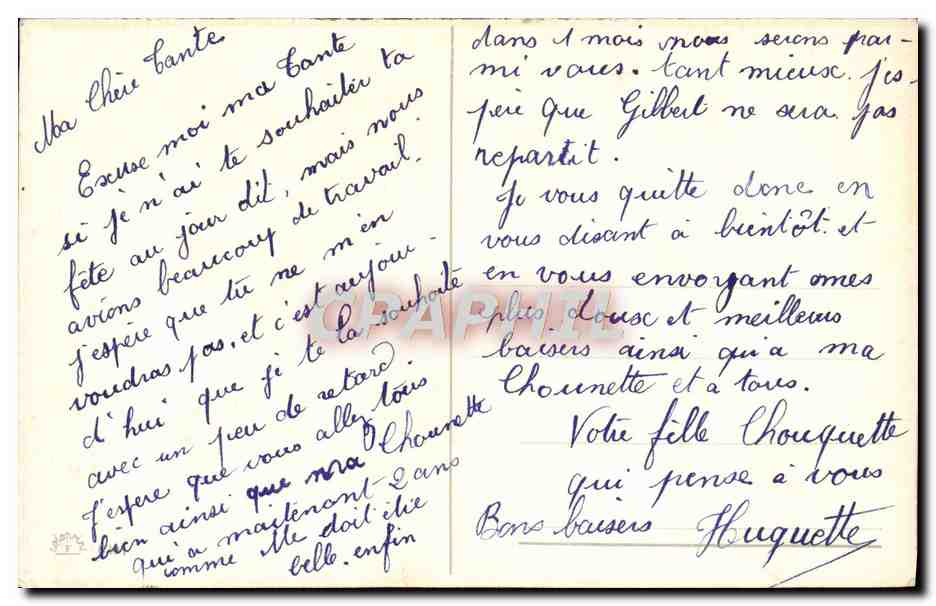 Ma Chère Tante
Excuse moi ma Tante
si je n'ai te souhaiter ta
fête au jour dit, mais nous
avions beaucoup de travail.
j'espère que tu ne m'en
voudras pas, et c'est aujour-
d'hui que je te la souhaite
avec un peu de retard.
J'espere que vous allez tous
bien ainsi que ma Chounette
qui a maitenant 2 ans
comme elle doit être
belle. enfin
dans 1 mois nous serons par-
mi vous. tant mieux. j'es-
père que Gilbert ne sera pas
repartit.
Je vous quitte donc en
vous disant à bientôt. et
en vous envoyant mes
plus doux et meilleurs
baisers ainsi qu'a ma
Chounette et a tous.
Votre fille Chouquette
qui pense à vous
Bons baisers Huguette
CPAPHIL